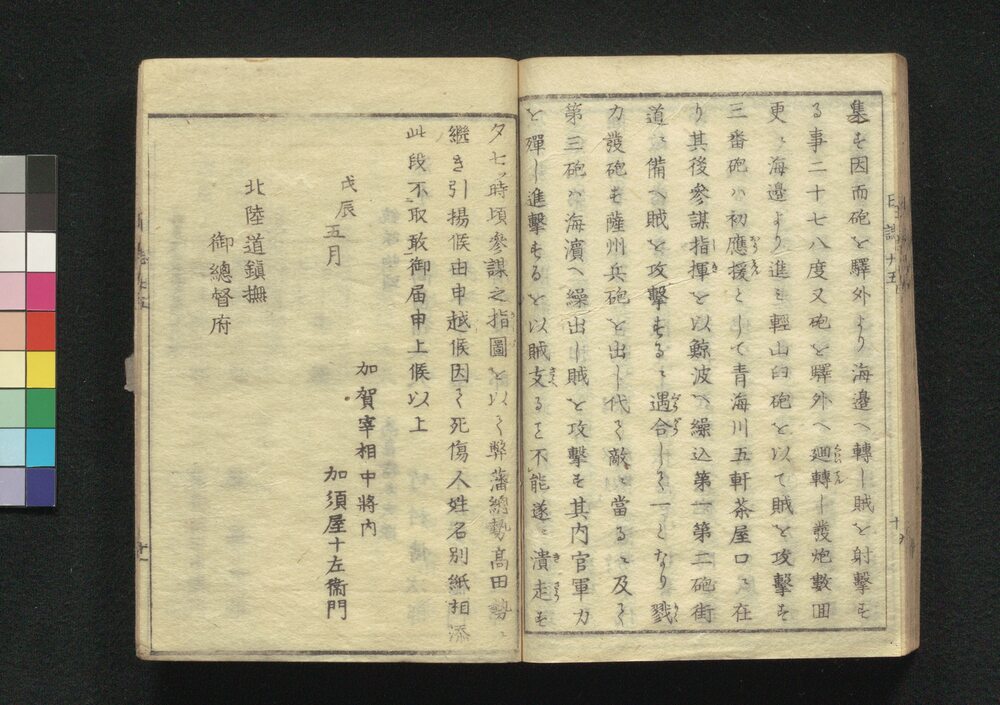 集す因而砲を驛外より海邉へ轉し賊を射擊す
る事二十七八度又砲を驛外へ廻轉し發炮數回
更に海邉より進み輕山臼砲を以て賊を攻擊す
三番砲ハ初應援として青海川五軒茶屋口に在
り其後參謀指揮を以鯨波へ繰込第一第二砲街
道に備へ賊を攻擊するに遇合して一となり戮
力發砲す薩州兵砲を出し代て敵に當るに及て
第三砲ハ海濱へ繰出し賊を攻擊す其内官軍力
を殫し進擊するを以賊支る不能遂に潰走す
夕七ッ時頃參謀之指圖を以て弊藩總勢髙田勢に
繼き引揚候由申越候因て死傷人姓名別紙相添
此段不取敢御届申上候以上
戊辰五月
加賀宰相中將内
加須屋十左衞門
北陸道鎭撫
御總督府